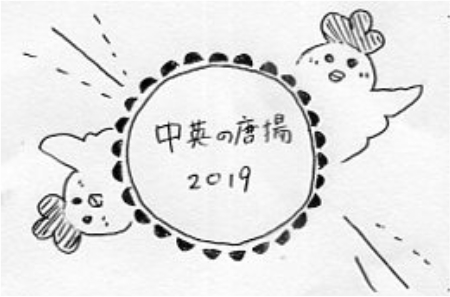 中英の唐揚
2019